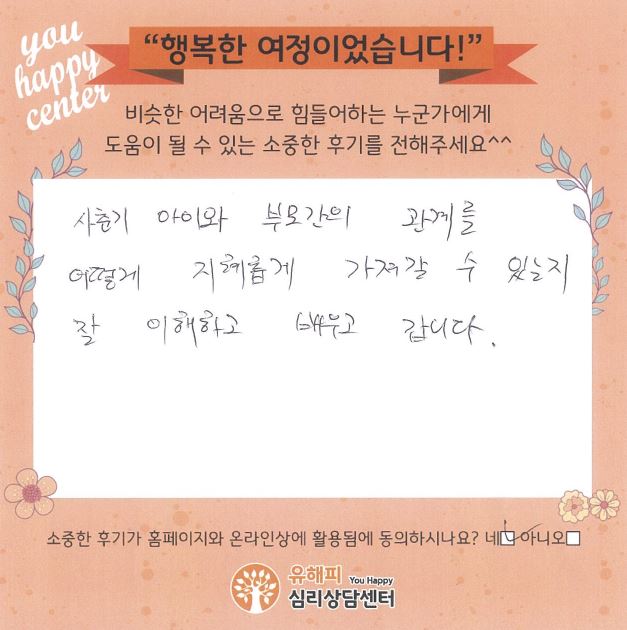 you
happy
center
“행복한 여정이었습니다!”
비슷한 어려움으로 힘들어하는 누군가에게
도움이 될 수 있는 소중한 후기를 전해주세요^^
사춘기 아이와 부모간의 관계를
어떻게 지혜롭게 가져갈 수 있는지
잘 이해하고 배우고 갑니다.
소중한 후기가 홈페이지와 온라인상에 활용됨에 동의하시나요? 네☑ 아니오□
유해피 You Happy
심리상담센터